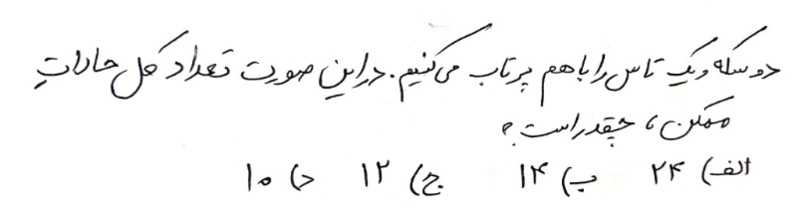 دو سکه و یک تاس را با هم پرتاب می‌کنیم. در این صورت تعداد کل حالات
ممکن، چقدر است؟
الف) ۲۴ ب) ۱۴ ج) ۱۲ د) ۱۰